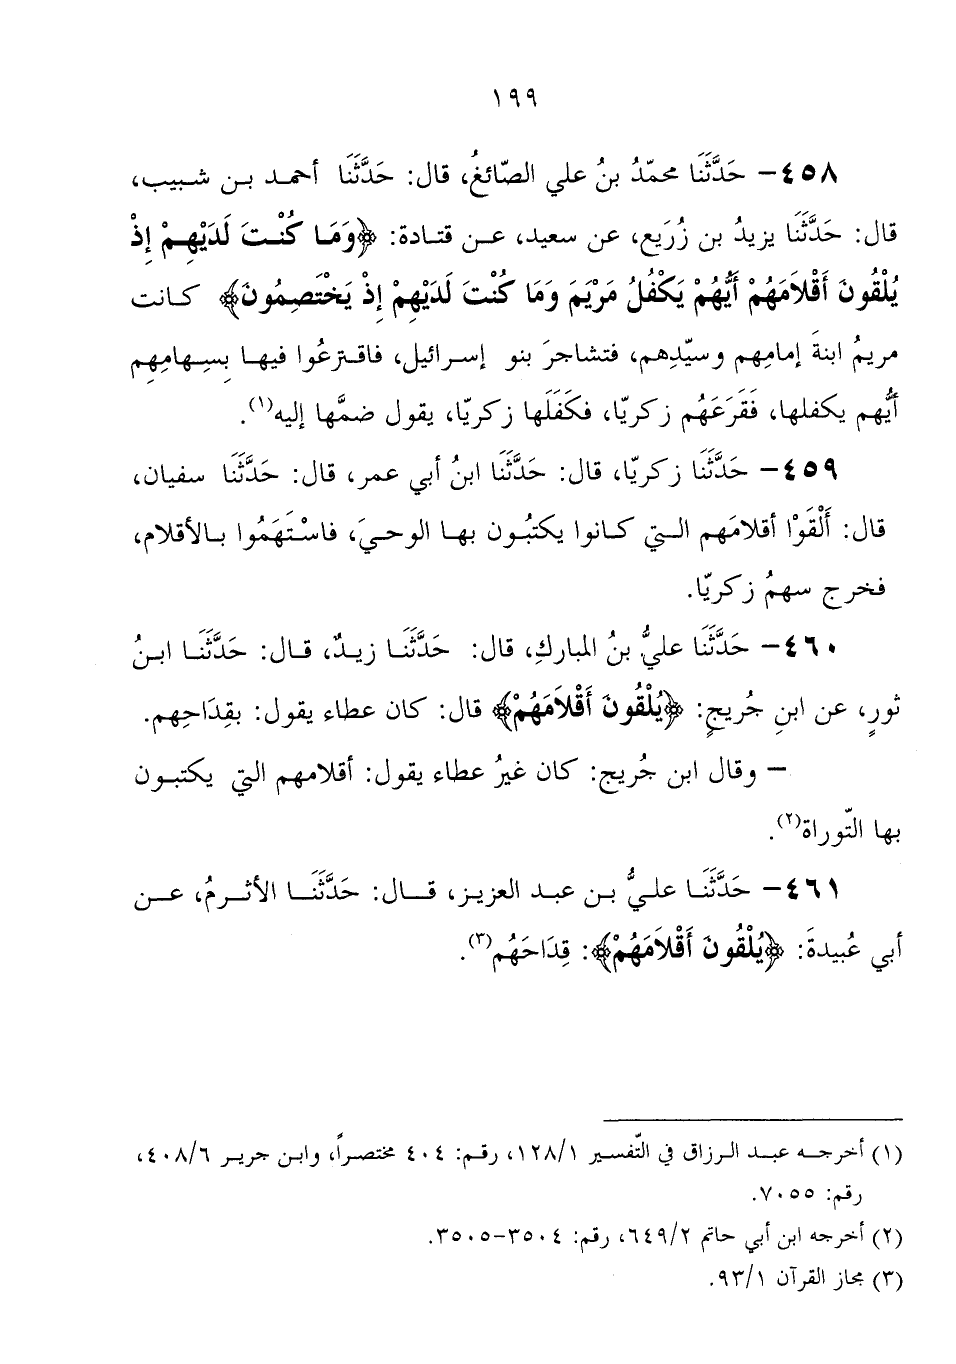 ١٩٩
٤٥٨– حَدَّثَنَا محمّدُ بنُ علي الصّائغُ، قال: حَدَّثَنَا أحمد بن شبيب،
قال: حَدَّثَنَا يزيدُ بن زُرَيع، عن سعيد، عن قتادة: ﴿وَمَا كُنْتَ لَدَيْهِمْ إِذْ
يُلْقُونَ أَقْلَامَهُمْ أَيُّهُمْ يَكْفُلُ مَرْيَمَ وَمَا كُنْتَ لَدَيْهِمْ إِذْ يَخْتَصِمُونَ﴾ كانت
مريمُ ابنةَ إمامِهم وسيّدِهم، فتشاجرَ بنو إسرائيل، فاقترعُوا فيها بِسِهامِهِم
أيُّهم يكفلها، فَقَرَعَهُم زكريّا، فكَفَلَها زكريّا، يقول ضمَّها إليه(١).
٤٥٩– حَدَّثَنَا زكريّا، قال: حَدَّثَنَا ابنُ أبي عمر، قال: حَدَّثَنَا سفيان،
قال: أَلْقَوْا أقلامَهم التي كانوا يكتبُون بها الوحيَ، فاسْتَهَمُوا بالأقلام،
فخرج سهمُ زكريّا.
٤٦٠– حَدَّثَنَا عليُّ بنُ المباركِ، قال: حَدَّثَنَا زيدٌ، قال: حَدَّثَنَا ابنُ
ثورٍ، عن ابنِ جُريجٍ: ﴿يُلْقُونَ أَقْلَامَهُمْ﴾ قال: كان عطاء يقول: بقِدَاحِهم.
– وقال ابن جُريج: كان غيرُ عطاء يقول: أقلامهم التي يكتبون
بها التّوراة(٢).
٤٦١– حَدَّثَنَا عليُّ بن عبد العزيز، قال: حَدَّثَنَا الأثرمُ، عن
أبي عُبيدةَ: ﴿يُلْقُونَ أَقْلَامَهُمْ﴾: قِدَاحَهُم(٣).
(١) أخرجه عبد الرزاق في التّفسير ١٢٨/١، رقم: ٤٠٤ مختصراً، وابن جرير ٤٠٨/٦،
رقم: ٧٠٥٥.
(٢) أخرجه ابن أبي حاتم ٦٤٩/٢، رقم: ٣٥٠٤–٣٥٠٥.
(٣) مجاز القرآن ٩٣/١.